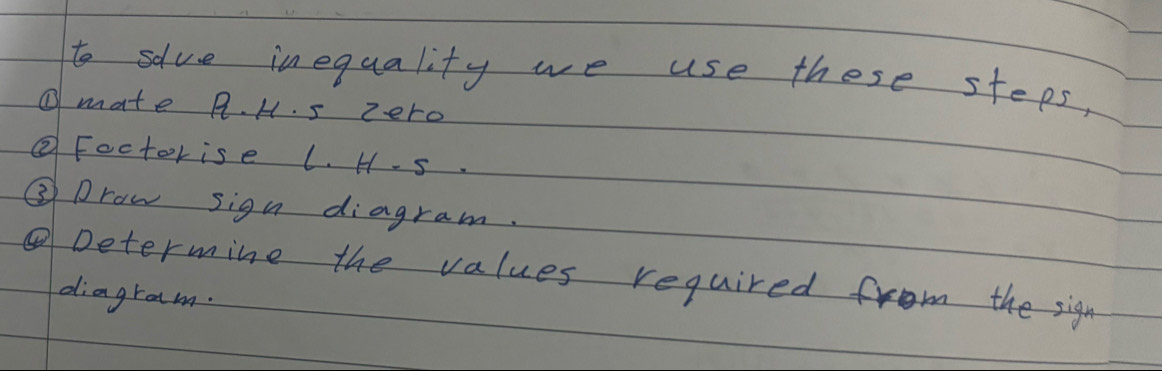 to solve inequality we use these steps,
① mate R.H.s zero
② Foctorise L.H.s.
③ Draw sign diagram.
④ Determine the values required from the sign
diagram.